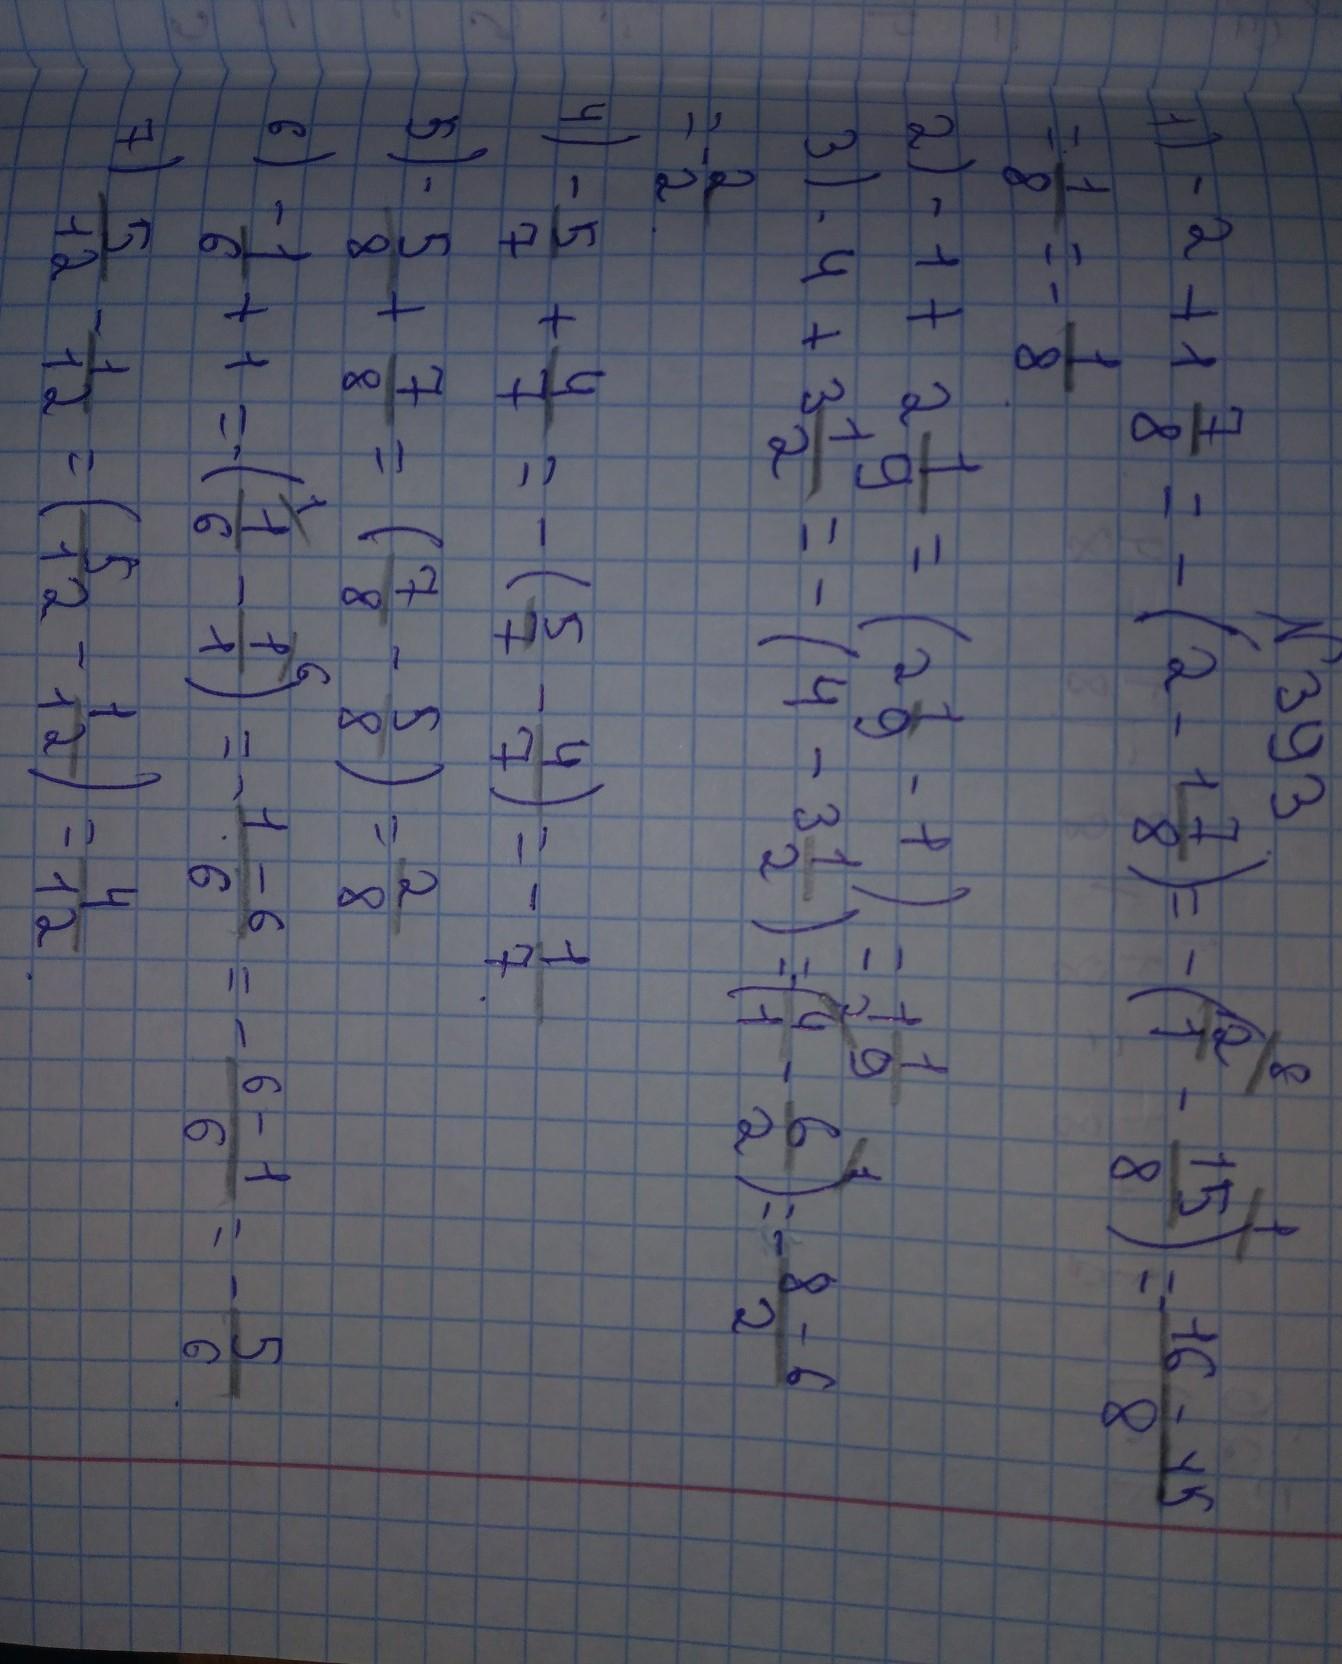 №393
1) -2 + 1 7/8 = -(2 - 1 7/8) = -(2/1 \8 - 15/8 \1) = - 16-15/8
= 1/8 = - 1/8
2) -1 + 2 1/9 = (2 1/9 - 1) = 1 1/9
3) -4 + 3 1/2 = -(4 - 3 1/2) = -(4/1 \2 - 6/2 \1) = - 8-6/2
= - 2/2
4) - 5/7 + 4/7 = -(5/7 - 4/7) = - 1/7
5) - 5/8 + 7/8 = (7/8 - 5/8) = 2/8
6) - 1/6 + 1 = -(1/6 \1 - 1/1 \6) = - 1-6/6 = - 6-1/6 = - 5/6
7) 5/12 - 1/12 = (5/12 - 1/12) = 4/12